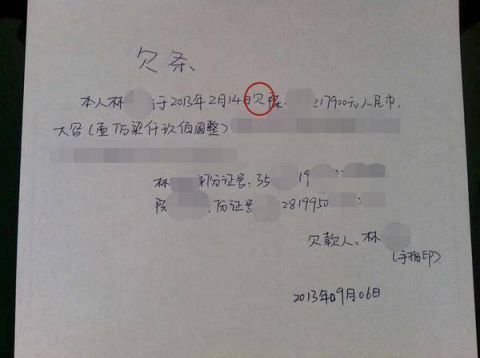 欠条
本人林 于2013年2月14日欠陈 217900元人民币,
大写(壹万柒仟玖佰圆整)
林 身份证号:35 19
陈 身份证号 2819950
欠款人:林
(手指印)
2013年09月06日